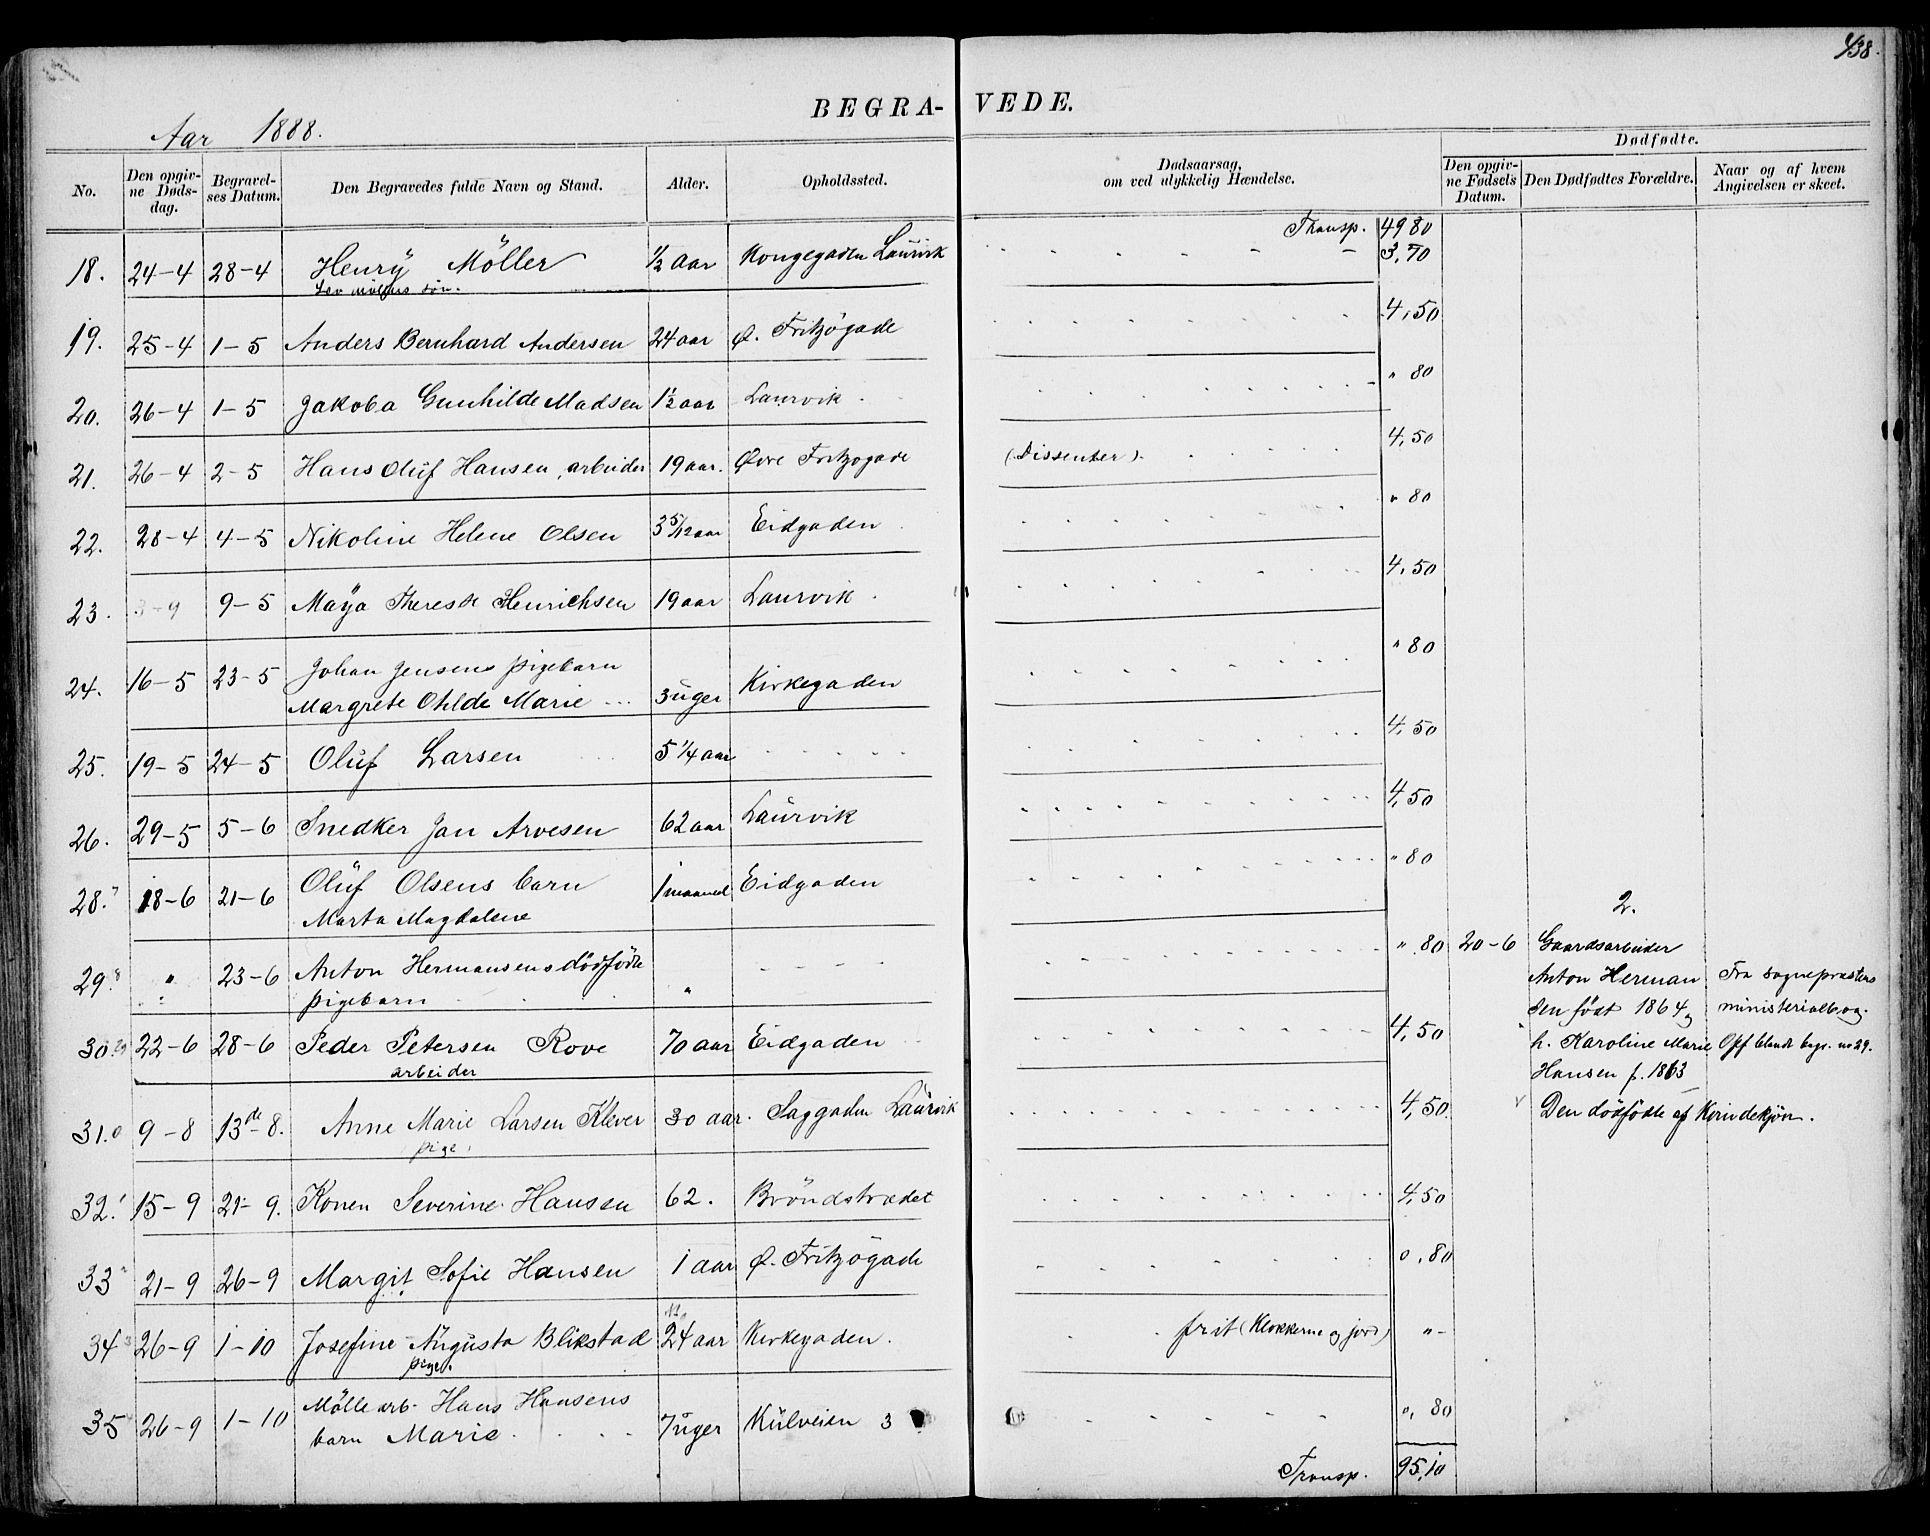 138.
BEGRA- VEDE.
Aar 1888.
No. Den opgivne Dødsdag. Begravelses Datum. Den Begravedes fulde Navn og Stand. Alder. Opholdssted. Dødsaarsag, om ved ulykkelig Hændelse. Dødfødte. Den opgivne Fødsels Datum. Den Dødfødtes Forældre. Naar og af hvem Angivelsen er skeet.
Transp. 49 80
18. 24-4 28-4 Henry Möller ½ aar Kongegaden Laurvik 3,70
Møllers søn.
19. 25-4 1-5 Anders Bernhard Andersen 24 aar Ø. Fritzögade 4,50
20. 26-4 1-5 Jakoba Gunhilde Madsen 1½ aar Laurvik. " 80
21. 26-4 2-5 Hans Oluf Hansen, arbeider 19 aar. Øvre Fritzogade (Dissenter). 4,50
22. 28-4 4-5 Nikoline Helene Olsen 3 5/12 aar Eidgaden " 80
23. 3-9 9-5 Maya Therese Henrichsen 19 aar Laurvik. 4,50
24. 16-5 23-5 Johan Jensens pigebarn " 80
Margrete Ohlde Marie 3 uger Kirkegaden
25. 19-5 24-5 Oluf Larsen 5 ¼ aar 4,50
26. 29-5 5-6 Snedker Jan Arvesen 62 aar Laurvik 4,50
28. 7 18-6 21-6 Oluf Olsens barn 1 maaned Eidgaden " 80
Marta Magdalene
2.
29. 8 " 23-6 Anton Hermansens dödfödte " " 80 20-6 Gaardsarbeider
pigebarn
Anton Herman Fra sognepræstens
sen födt 1864 og ministerialbog.
30. 29 22-6 28-6 Peder Petersen Rove 70 aar Eidgaden 4,50 h. Karoline Marie Opf blandt begr. no 29.
arbeider
Hansen f. 1863
31. 0 9-8 13de-8. Anne Marie Larsen Klever 30 aar. Saggaden Laurvik 4,50 Den dödfödte af Kvindekjøn.
pige.
32. 1 15-9 21-9. Konen Severine Hansen 62. Bröndstrædet 4,50
33 2 21-9 26-9 Margit Sofie Hansen 1 aar Ø. Fritzögade 0,80
34 3 26-9 1-10 Josefine Augusta Blikstad 24 aar Kirkegaden. frit (Klokkerne og jord) "-
pige.
35 4 26-9 1-10 Möllearb. Hans Hansens " 80
barn Marie 7 uger Kulveien 3
Transp. 95,10